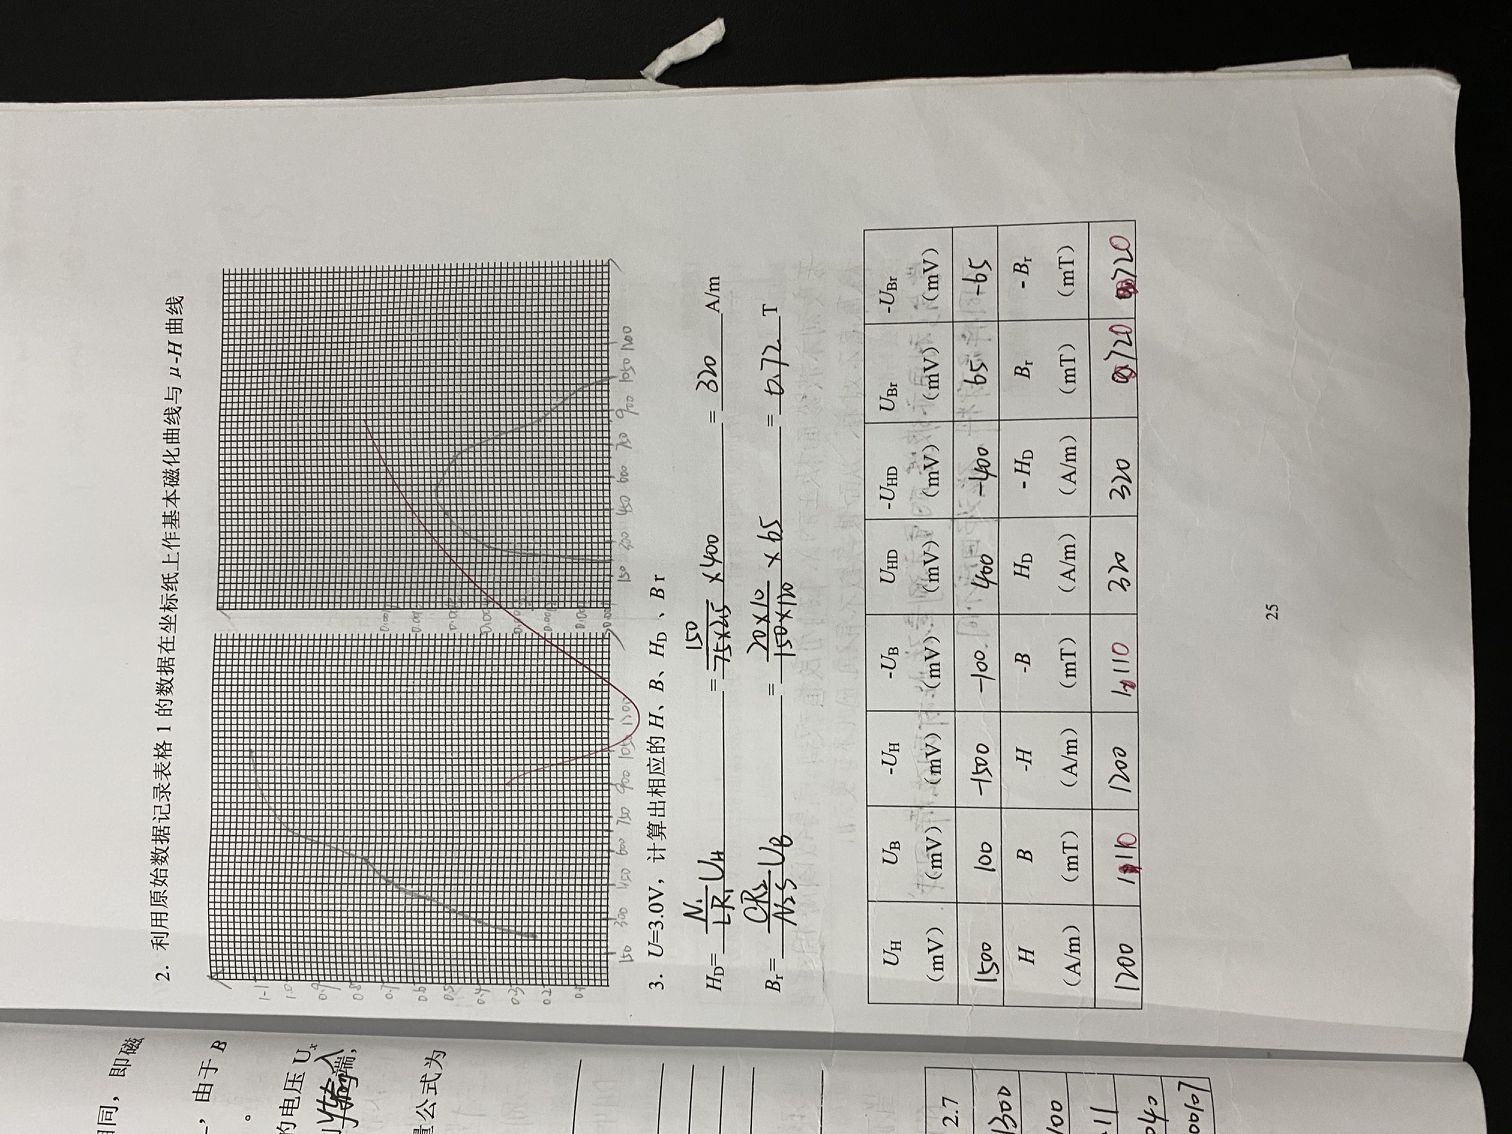 相同，即磁
，由于 B
。
的电压 Ux
输入端，
量公式为
2.7
1300
100
.11
040
00107
2．利用原始数据记录表格 1 的数据在坐标纸上作基本磁化曲线与 μ-H 曲线
1.1
1.0
0.9
0.8
0.7
0.6
0.5
0.4
0.3
0.2
0.1
150 300 450 600 750 900 1050 1200
150 300 450 600 750 900 1050 1200
3．U=3.0V，计算出相应的 H、B、HD 、Br
HD= N1/LR1 UH = 150/75×2.5 ×400 = 320 A/m
Br= CR2/N2S UB = 20×10/150×120 × 65 = 0.72 T
UH（mV） UB（mV） -UH（mV） -UB（mV） UHD（mV） -UHD（mV） UBr（mV） -UBr（mV）
1500 100 -1500 -100 400 -400 65 -65
H（A/m） B（mT） -H（A/m） -B（mT） HD（A/m） - HD（A/m） Br（mT） - Br（mT）
1200 1110 1200 1110 320 320 720 720
25